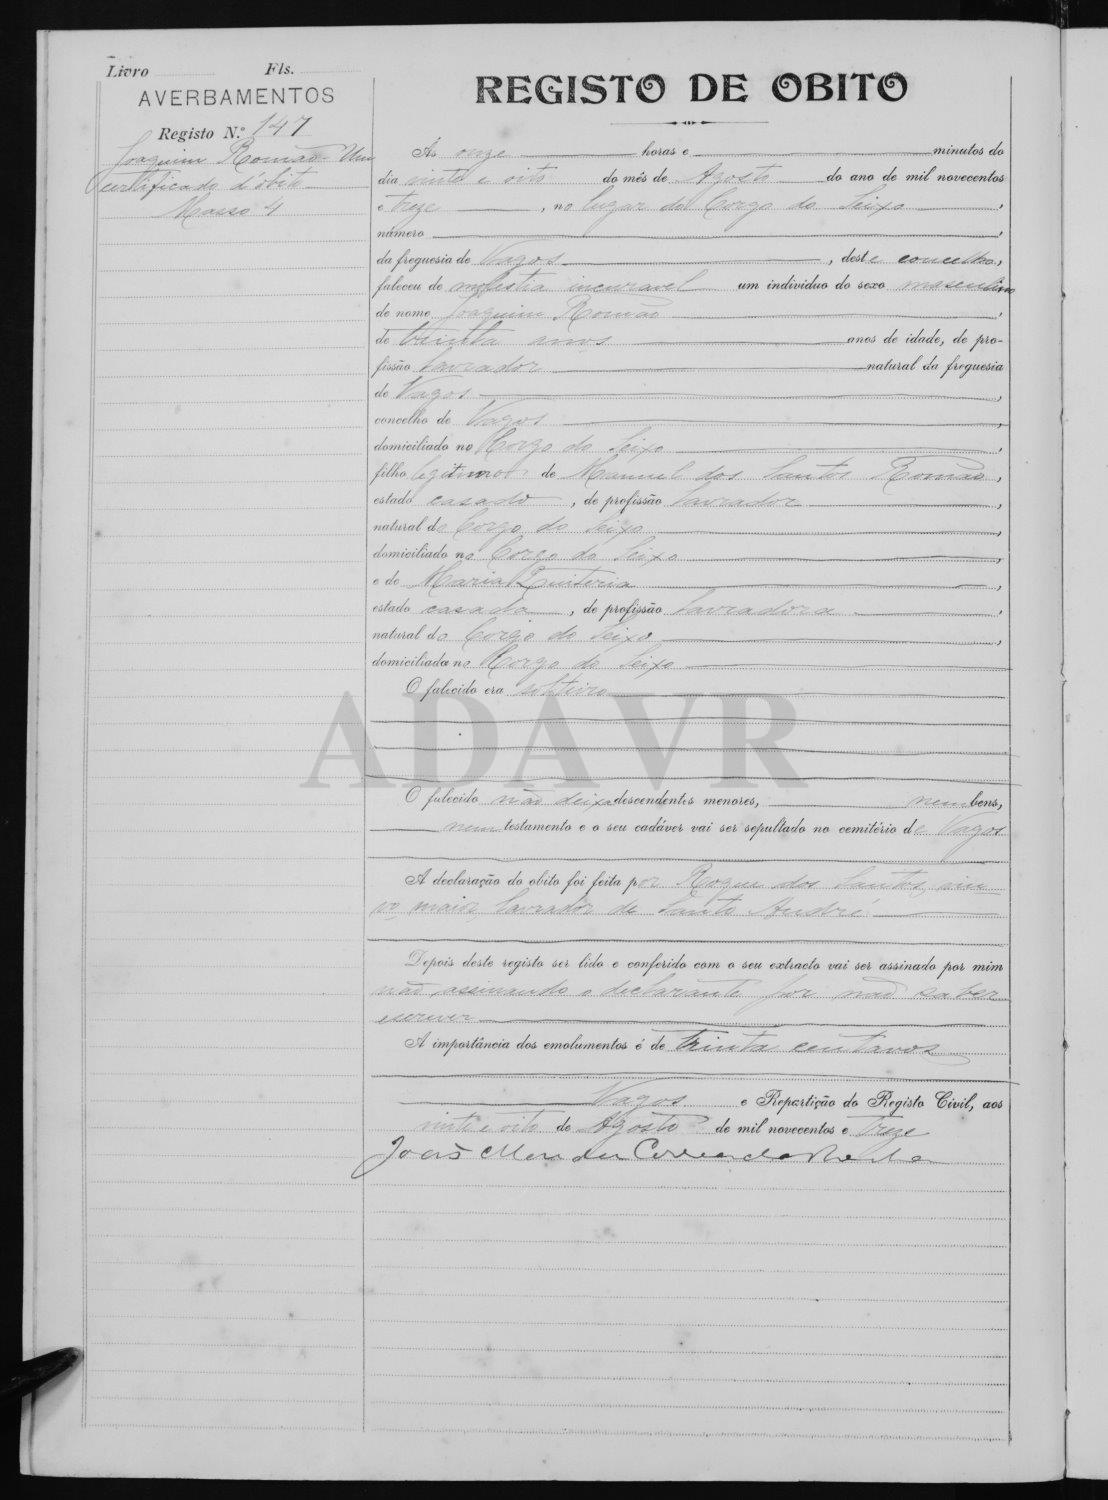 Livro Fls.
AVERBAMENTOS
Registo N.º 147
Joaquim Romão Um
certificado d'óbito
Masso 4
REGISTO DE OBITO
Ás onze horas e minutos do
dia vinte e oito do mês de Agosto do ano de mil novecentos
e treze, no lugar do Corgo do Seixo,
número,
da freguesia de Vagos, deste concelho,
faleceu de molestia incuravel um individuo do sexo masculino
de nome Joaquim Romão,
de trinta anos anos de idade, de pro-
fissão lavrador natural da freguesia
de Vagos,
concelho de Vagos,
domiciliado no Corgo do Seixo,
filho legitimo de Manuel dos Santos Romão,
estado casado, de profissão lavrador,
natural do Corgo do Seixo,
domiciliado no Corgo do Seixo,
e de Maria Quiteria,
estado casada, de profissão lavradora,
natural do Corgo do Seixo,
domiciliada no Corgo do Seixo
O falecido era solteiro
ADAVR
O falecido não deixa descendentes menores, nem bens,
nem testamento e o seu cadáver vai ser sepultado no cemitério de Vagos
A declaração do obito foi feita por Roque dos Santos, viu-
vo, maior, lavrador de Santo André
Depois deste registo ser lido e conferido com o seu extracto vai ser assinado por mim
não assinando o declarante por não saber
escrever
A importância dos emolumentos é de trinta centavos
Vagos e Repartição do Registo Civil, aos
vinte e oito de Agosto de mil novecentos e treze
João Mendes Correia da Rocha